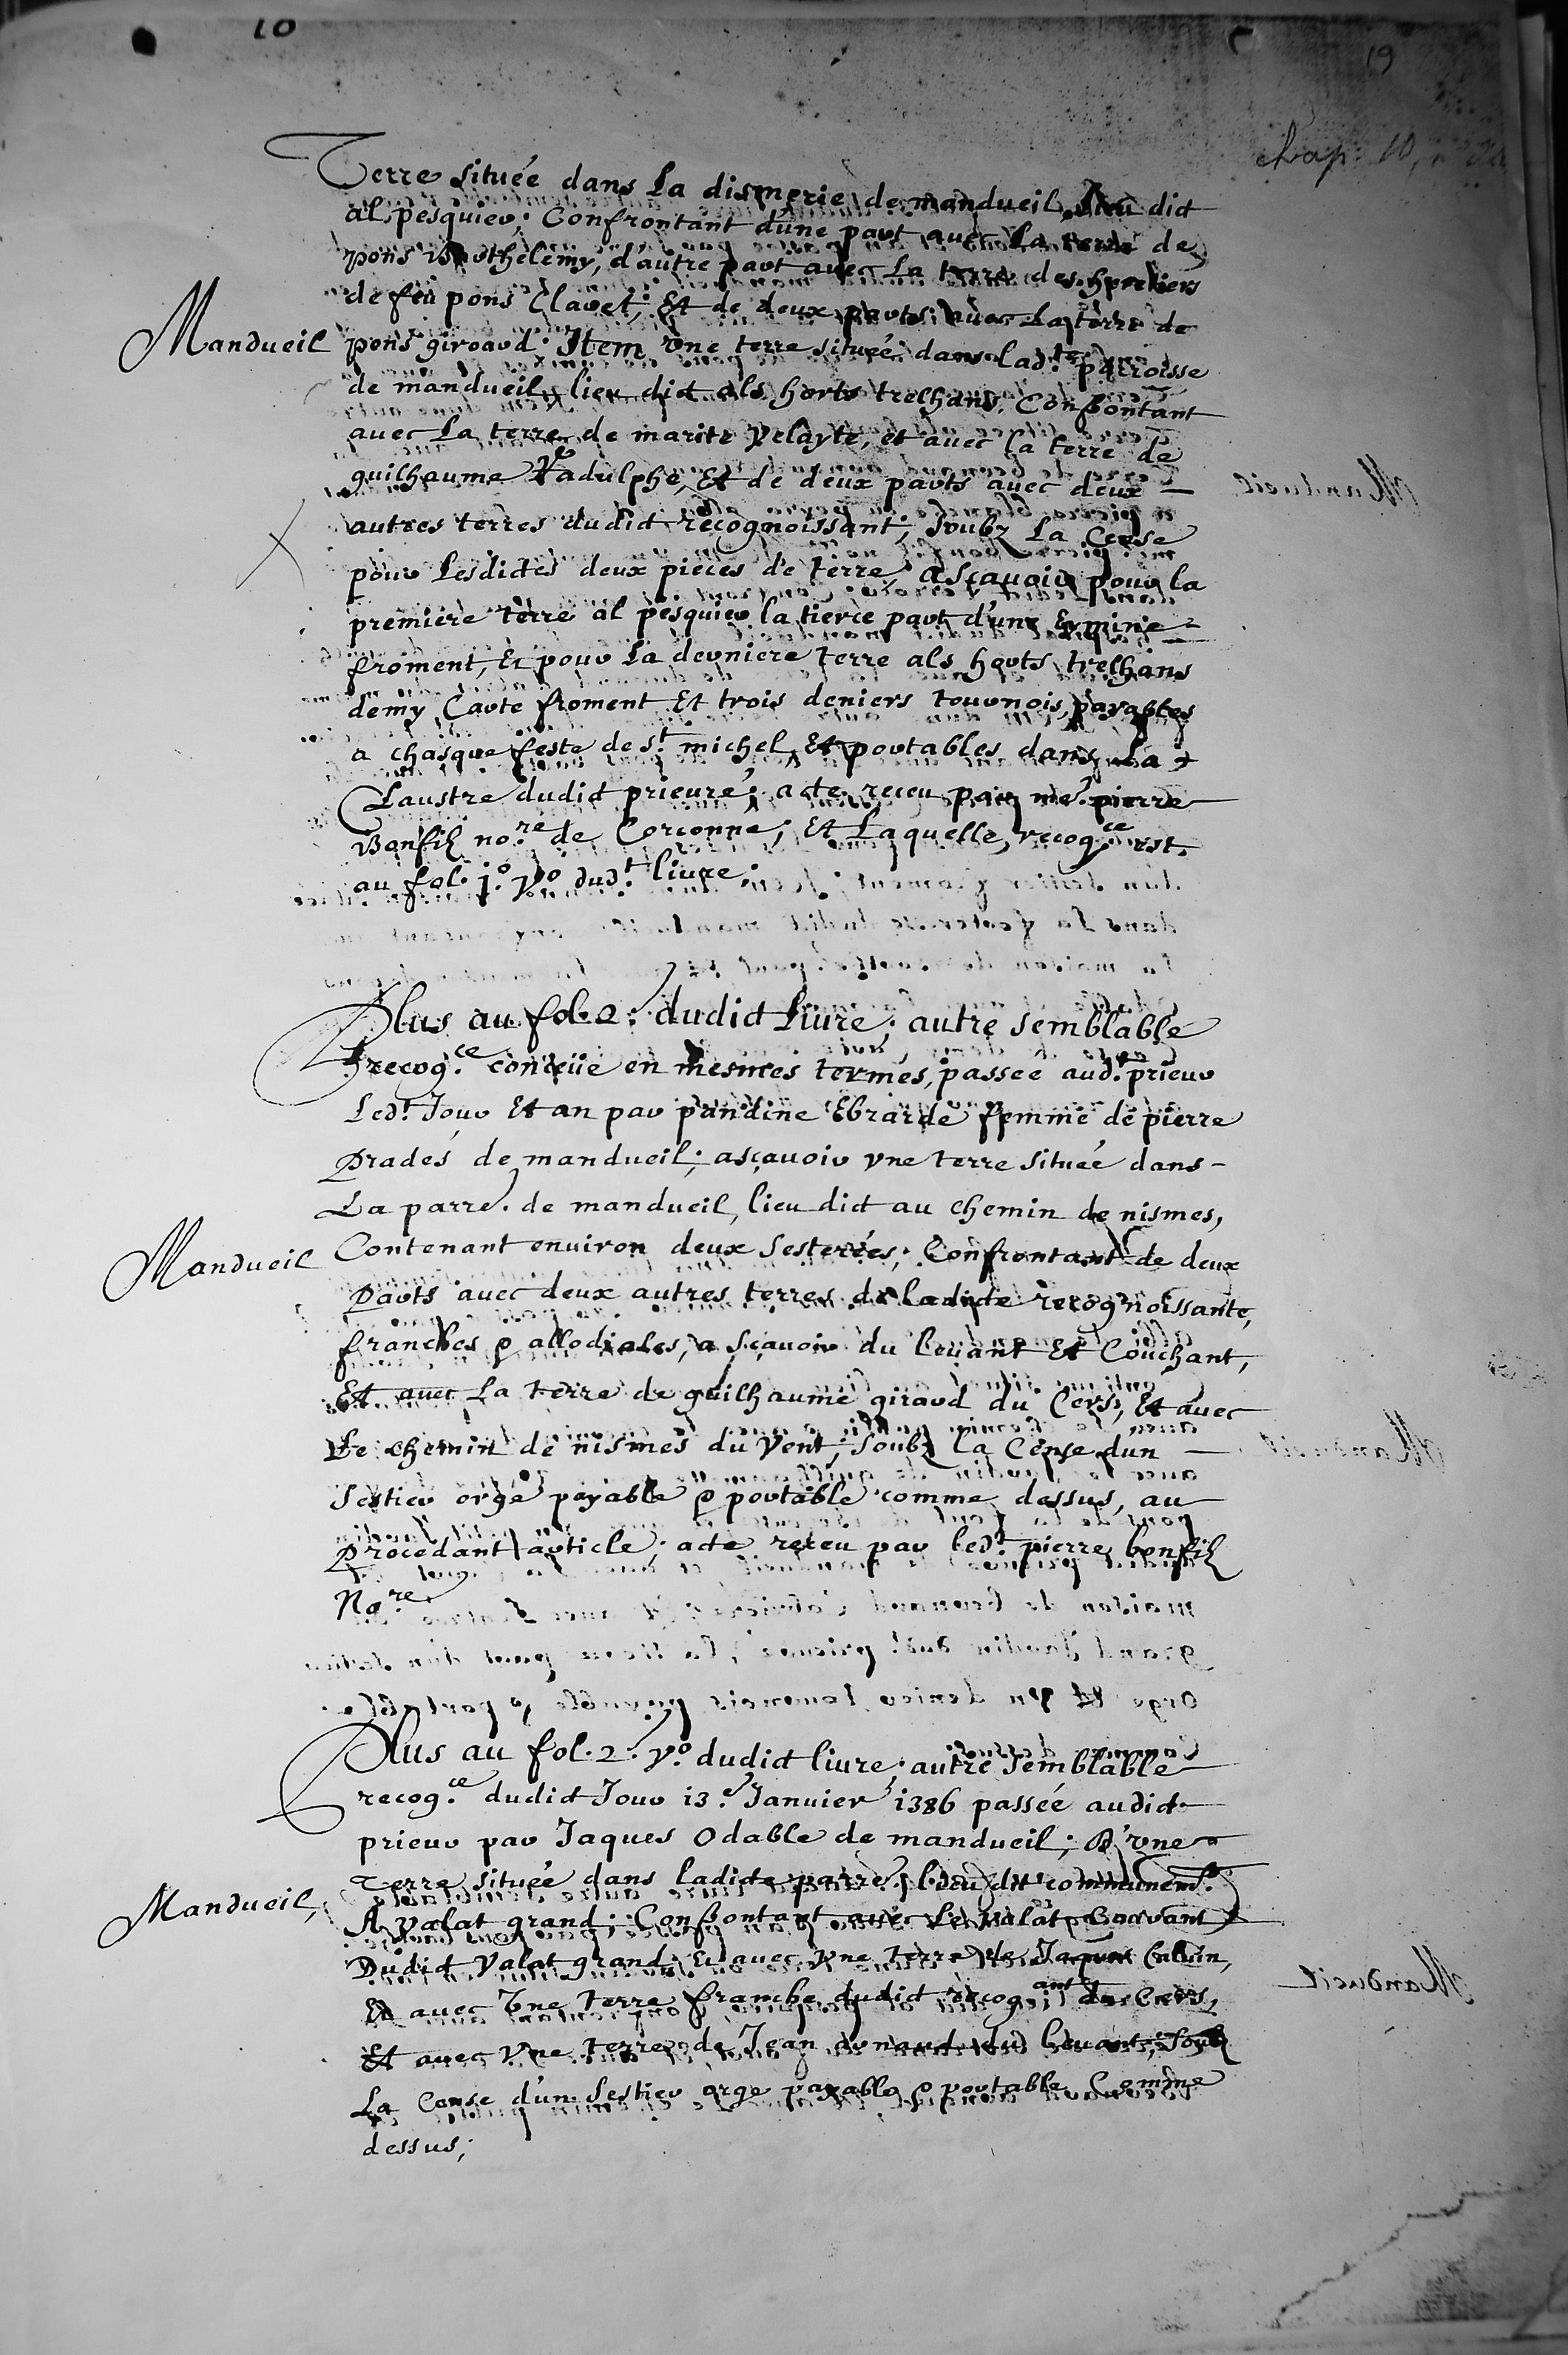 10
19
chap. 10,
Terre située dans La dismerie de mandueil, Lieu dict
al pesquier; Confrontant d'une part avec La terre de
pons Barthelemy, d'autre part avec La terre des heretiers
de feu pons Clavel; Et de deux parts avec La terre de
Mandueil
pons giroard. Item vne terre située dans lad.te parroisse
de mandueil, lieu dict als horts trelhans, Confrontant
avec La terre de marite Velayte, et avec la terre de
guilhaume Radulphe, Et de deux parts avec deux
autres terres dudict recognoissant; soubz La Cense
pour Lesdictes deux pieces de terre, ascauoir pour la
premiere terre al pesquier la tierce part d'une Ermine
froment, Et pour La derniere terre als horts trelhans
demy Carte froment Et trois deniers tournois, payables
a chasque feste de s.t michel, Et portables dans La
Claustre dudict prieuré; acte receu par me. pierre
Bonfilz no.re de Corconne; Et Laquelle, recog.ce est
au fol. 1.o v.o dud.t liure.
Plus au fol. 2. dudict Liure; autre semblable
recog.ce conceüe en mesmes termes, passée aud.t prieur
Led.t Jour Et an par pandine Ebrarde femme de pierre
Prades de mandueil; ascauoir vne terre située dans
La parre. de mandueil, lieu dict au chemin de nismes,
Mandueil
Contenant enuiron deux Sesterées; Confrontant de deux
Parts avec deux autres terres de ladicte recognoissante,
franches & allodiales, a scauoir du leuant Et Couchant,
Et avec La terre de guilhaume giraud du Cers, Et avec
Le chemin de nismes du Vent; Soubz la Cense dun
Sestier orge payable & portable comme dessus, au
Procedant article; acte receu par led.t pierre bonfilz
No.re
Plus au fol. 2. v.o dudict liure; autre semblable
recog.ce dudict Jour 13.e Januier 1386 passée audict
prieur par Jaques Odable de mandueil; D'vne
Terre située dans ladicte parre. lieu dit communem.t
Mandueil,
A valat grand; Confrontant avec Le valat
Dudict Valat grand, Et avec vne terre de Jaques
Et avec Vne terre franche dudict recog.ant du Cers,
Et avec Vne terre de Jean arnaud du leuant; Soubz
La Cense d'un Sestier orge payable & portable Comme
dessus;